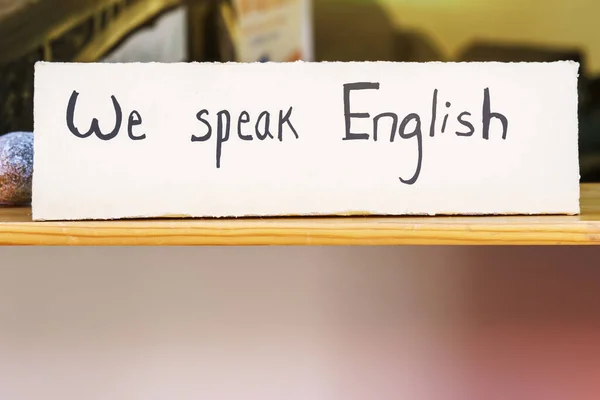 We speak English